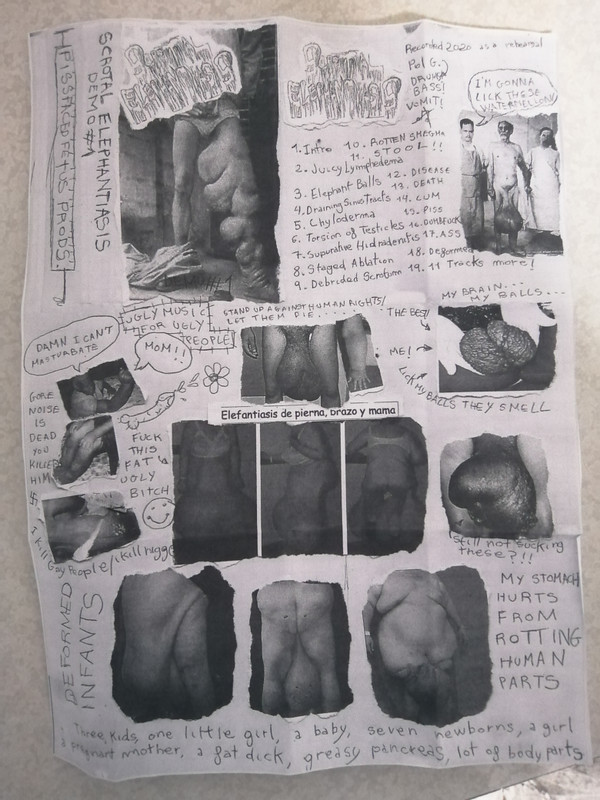 SCROTAL ELEPHANTIASIS
DEMO #1
PISSFACED FETUS PRODS
Recorded 2020 as a rehearsal
Pol G.
DRUMS
BASS!
VOMIT!
I'M GONNA
LICK THESE
WATERMELLONS
1. Intro
2. Juicy Lymphedema
3. Elephant Balls
4. Draining Sinus Tracts
5. Chyloderma
6. Torsion of Testicles
7. Supurative Hidradenitis
8. Staged Ablation
9. Debrided Scrotum
10. ROTTEN SMEGMA
11. STOOL!!
12. DISEASE
13. DEATH
14. CUM
15. PISS
16. DUMBFUCK
17. ASS
18. Deformed
19. 11 Tracks more!
UGLY MUSIC
FOR UGLY
PEOPLE
STAND UP AGAINST HUMAN RIGHTS!
LET THEM DIE.....
THE BEST!
MY BRAIN...
MY BALLS...
ME!
LICK MY BALLS THEY SMELL
DAMN I CAN'T
MASTURBATE
MOM!!
GORE
NOISE
IS
DEAD
YOU
KILLED
HIM
$
FUCK
THIS
FAT
UGLY
BITCH
Elefantiasis de pierna, brazo y mama
I kill Gay People/I kill
Still not sucking
these?!!
DEFORMED
INFANTS
MY STOMACH
HURTS
FROM
ROTTING
HUMAN
PARTS
Three kids, one little girl, a baby, seven newborns, a girl
a pregnant mother, a fat dick, greasy pancreas, lot of body parts